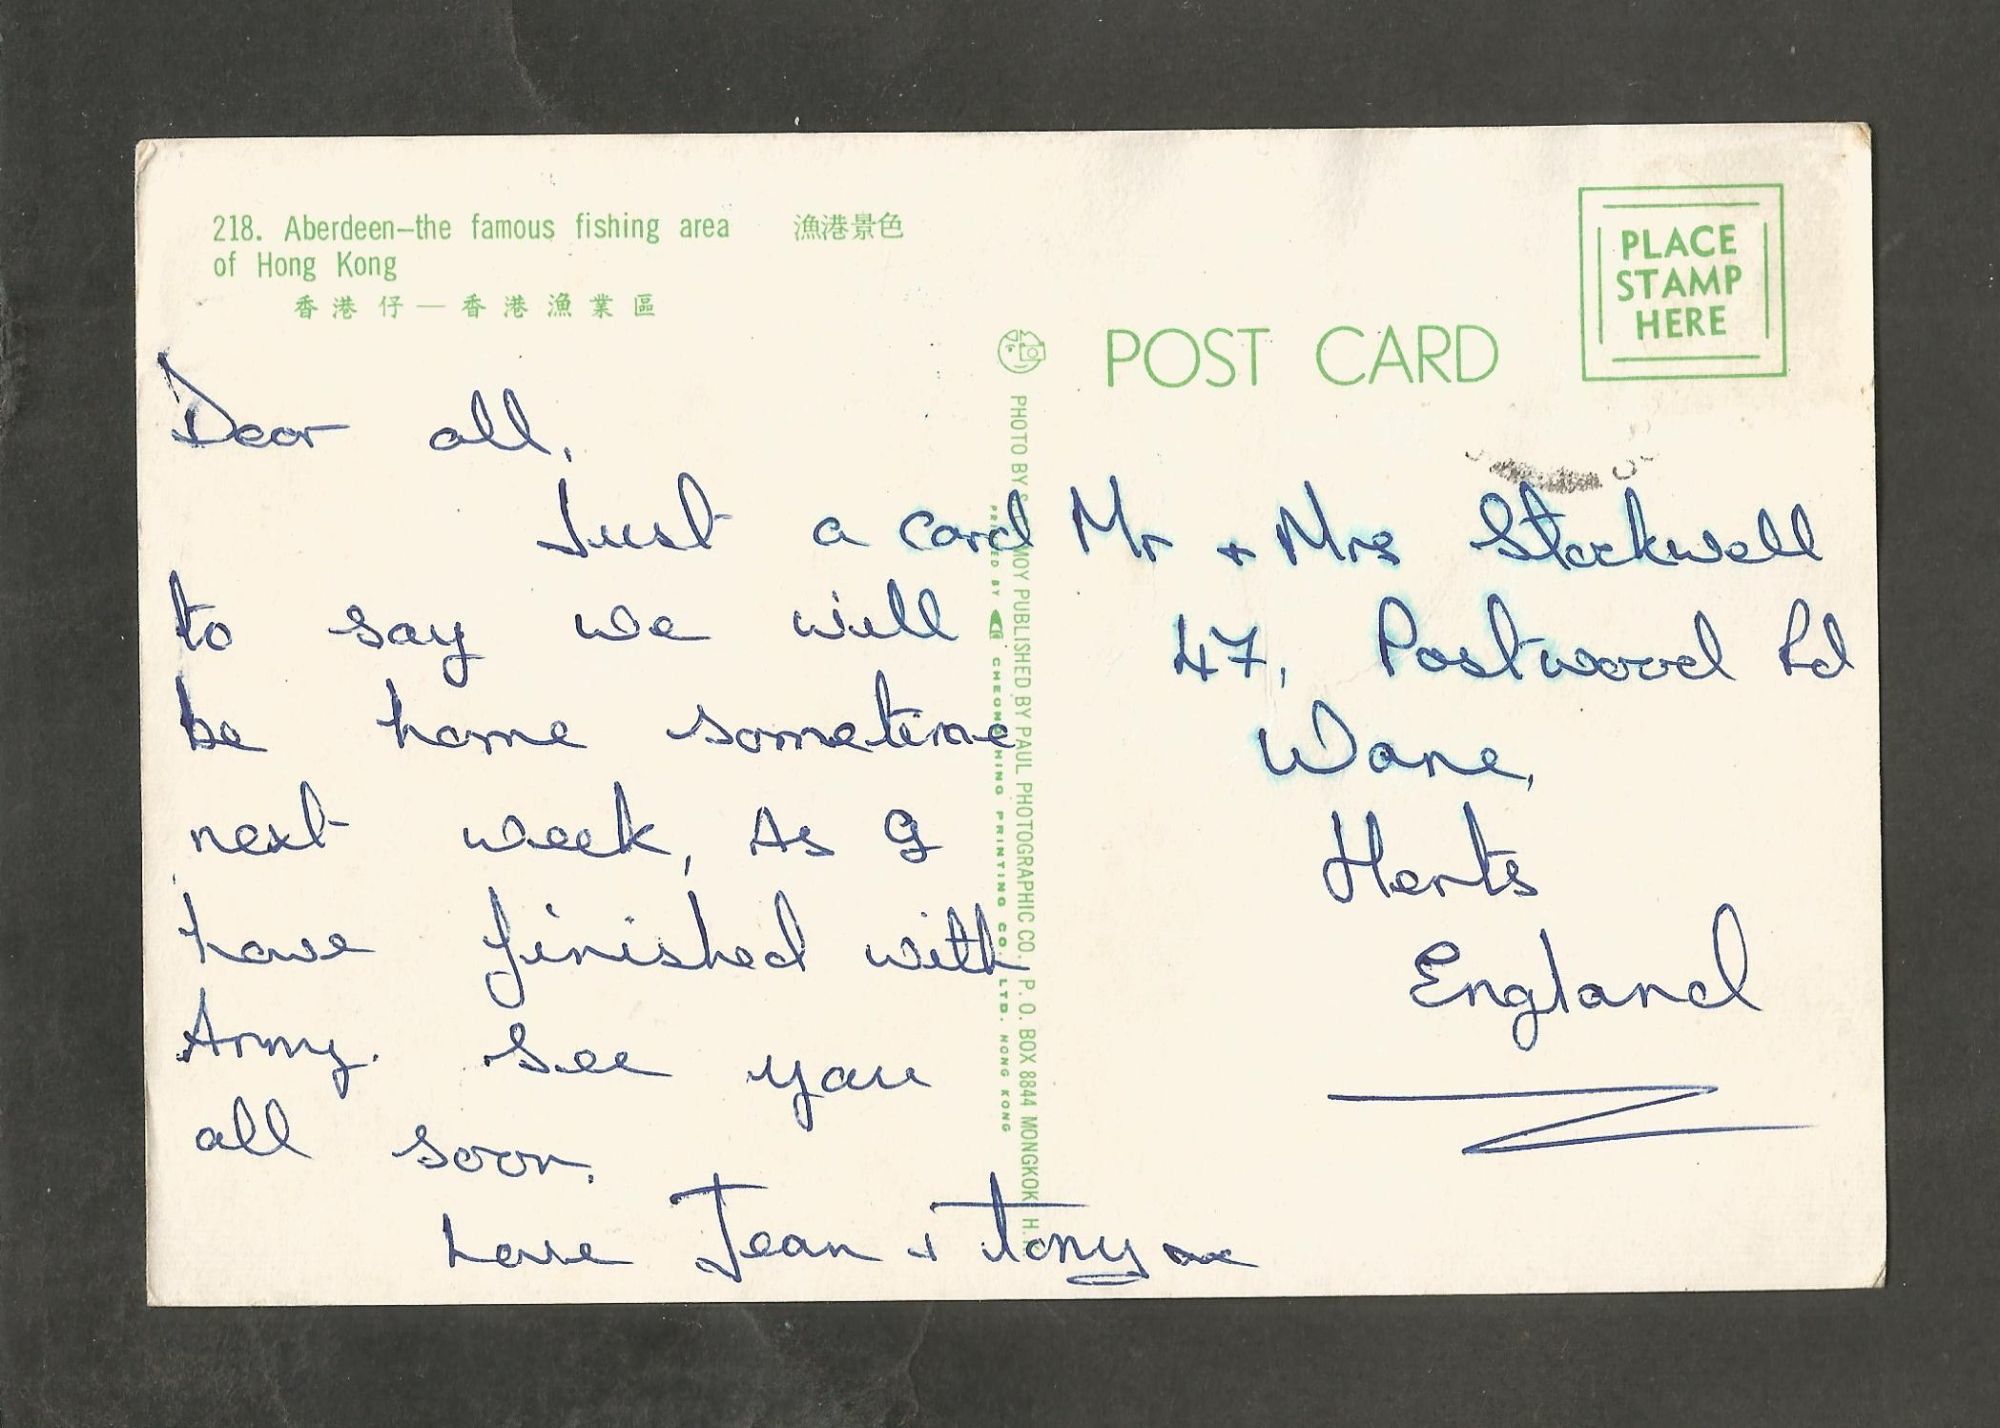 218. Aberdeen–the famous fishing area 漁港景色
of Hong Kong
香港仔—香港漁業區
Dear all,
Just a card
to say we will
be home sometime
next week, As I
have finished with
Army. See you
all soon.
Love Jean + Tony
PHOTO BY MOY PUBLISHED BY PAUL PHOTOGRAPHIC CO., P. O. BOX 8844 MONGKOK H.
PRINTED BY CHEONG HING PRINTING CO., LTD. HONG KONG
POST CARD
PLACE
STAMP
HERE
Mr + Mrs Stockwell
47, Postwood Rd
Ware,
Herts
England